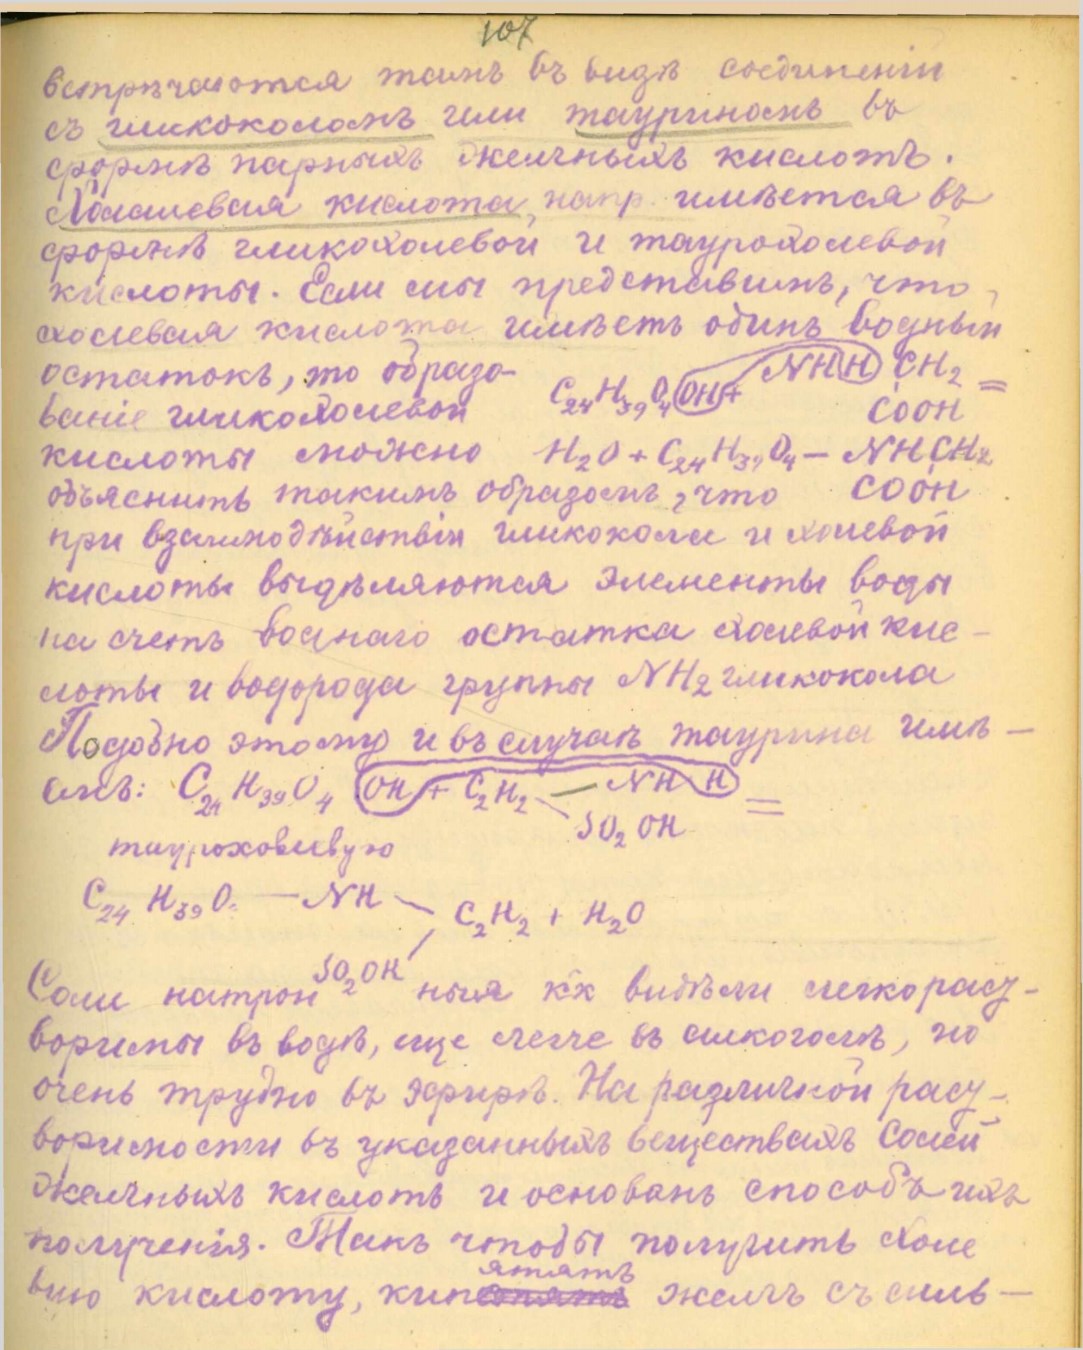 107
встрѣчаются тамъ въ видѣ соединеній
съ гликоколомъ или тауриномъ въ
формѣ парныхъ желчныхъ кислотъ.
Холалевая кислота, напр. имѣется въ
формѣ гликохолевой и таурохолевой
кислоты. Если мы представимъ, что
холевая кислота имѣетъ одинъ водный
остатокъ, то образо-
ваніе гликохолевой
C24H39O4 OH + NHH CH2 =
COOH
кислоты можно H2O + C24H39O4 — NHCH2
объяснить такимъ образомъ, что COOH
при взаимодѣйствіи гликокола и холевой
кислоты выдѣляются элементы воды
на счетъ воднаго остатка холевой кис-
лоты и водорода группы NH2 гликокола
Подобно этому и въ случаѣ таурина имѣ-
емъ: C24H39O4 OH + C2H2 — NHH =
SO2OH
таурохолевую
C24H39O — NH — C2H2 + H2O
SO2OH
Соли натрон ныя к'к видѣли легко раст-
воримы въ водѣ, еще легче въ алкоголѣ, но
очень трудно въ эфирѣ. На различной раст-
воримости въ указанныхъ веществахъ солей
желчныхъ кислотъ и основанъ способъ ихъ
полученія. Такъ чтобы получить холе
вую кислоту, кипятятъ желчь съ силь-